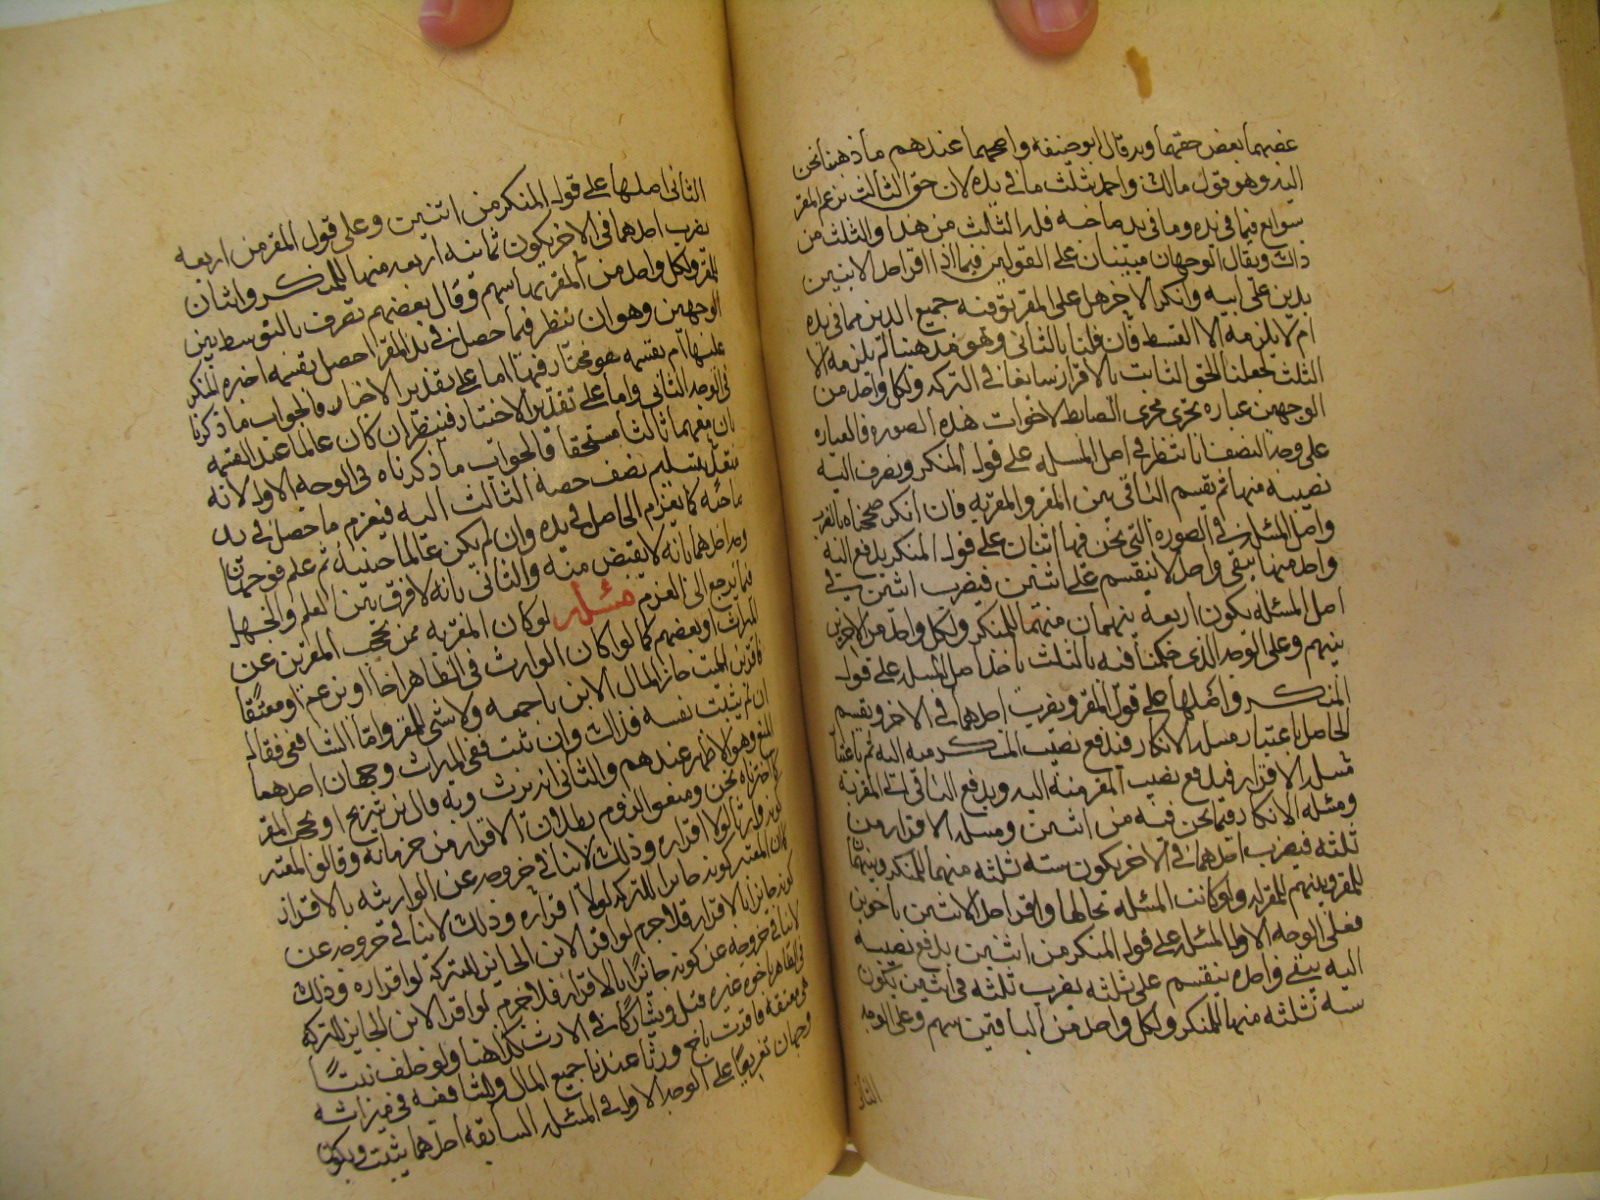 غصبهما بعض حقهما وبه قال ابو حنيفه واصحهما عندهم ما ذهبنا نحن
اليه وهو قول مالك واحمد بثلث ما في يده لان حق الثالث بزعم المقر
شايع فيما في يده وما في يد صاحبه فله الثلث من هذا والثلث من
ذاك ويقال الوجهان مبنيان على القولين فيما اذا اقر احد الابنين
بدين على ابيه وانكر الاخر هل على المقر توفية جميع الدين مما في يده
ام لا يلزمه الا القسط فان قلنا بالثاني وهو مذهبنا لم يلزمه الا
الثلث لجعلنا الحق الثابت بالاقرار شايعا في التركه ولكل واحد من
الوجهين عباره تجري مجرى الضابط لاخوات هذه الصوره فالعباره
على وجه النصف انا ننظر في اصل المسله على قول المنكر ويصرف اليه
نصيبه منها ثم يقسم الباقي بين المقر والمقر به فان انكسر صححناه بالضرب
واصل المسئله في الصورة التي نحن فيها اثنان على قول المنكر يدفع اليه
واحد منها يبقى واحد لا ينقسم على اثنين فيضرب اثنين في
اصل المسئله يكون اربعه سهمان منها للمنكر ولكل واحد من الاخرين
سهم وعلى الوجه الذي حكمنا فيه بالثلث ياخذ اصل المسله على قول
المنكر واصلها على قول المقر ويضرب احدهما في الاخر ويقسم
الحاصل باعتبار مسله الانكار فيدفع نصيب المنكر منه اليه ثم باعتبار
مسله الاقرار فيدفع نصيب المقر منه اليه ويدفع الباقي الى المقر به
ومسله الانكار فيما نحن فيه من اثنين ومسله الاقرار من
ثلثه فيضرب احدهما في الاخر يكون سته ثلثه منها للمنكر وسهمان
للمقر وسهم للمقر له ولو كانت المسئله بحالها واقر احد الابنين باخوين
فعلى الوجه الاول المسله على قول المنكر من اثنين يدفع نصيبه
اليه يبقى واحد لا ينقسم على ثلثه يضرب ثلثه في اثنين يكون
سته ثلثه منها للمنكر ولكل واحد من الباقين سهم وعلى الوجه
الثاني
الثاني اصلها على قول المنكر من اثنين وعلى قول المقر من اربعه
يضرب احدهما في الاخر يكون ثمانيه اربعه منها للمنكر واثنان
للمقر ولكل واحد من المقر بهما سهم وقال بعضهم تصرف بالتوسط بين
الوجهين وهو ان ننظر فيما حصل في يد المقر احصل بقسمه اجبره المنكر
عليها ام بقسمه هو مختار فيها اما على تقدير الاجبار فالجواب ما ذكرنا
في الوجه الثاني واما على تقدير الاختيار فينظر ان كان عالما عند القسمه
بان معهما ثالثا مستحقا فالجواب ما ذكرناه في الوجه الاول لانه
متعد بتسليم نصف حصه الثالث اليه فيغرم ما حصل في يد
صاحبه كما يغرم الحاصل في يده وان لم يكن عالما حينئذ ثم علم فوجهان
وجه احدهما بانه لا تقصير منه والثاني بانه لا فرق بين العلم والجهل
فيما يرجع الى الغرم مسئله لو كان المقر به ممن يحجب المقرين عن
الميراث او بعضهم كما لو كان الوارث في الظاهر اخا او ابن عم او معتقا
فاقر بابن للميت حاز المال الابن باجمعه ولا شي للمقر واما الشافعي فقال
ان لم يثبت نسبه فذاك وان ثبت ففي الميراث وجهان احدهما
المنع وهو الاظهر عندهم والثاني انه يرث وبه قال ابن سريج
كما اخترناه نحن ومنعوا لزوم بطلان الاقرار من حرمانه وقالوا المعتبر
كونه وارثا لولا اقراره وذلك لا ينافي خروجه عن الوارثيه بالاقرار
كما ان المعتبر كونه حائزا للتركه لولا اقراره وذلك لا ينافي خروجه عن
كونه حائزا بالاقرار فلا جرم لو اقر الابن الحايز للتركه
لا ينافي خروجه عن كونه حائزا بالاقرار فلا جرم لو اقر الابن الحايز للتركه
في الظاهر باخوة غيره قبل ويشاركان في الارث كذا هنا ولو خلف بنتا
هي معتقه فاقرت باخ ورثا عندنا جميع المال وللشافعيه في ميراثه
وجهان تفريعا على الوجه الاول في المسئله السابقه احدهما يثبت ويكون